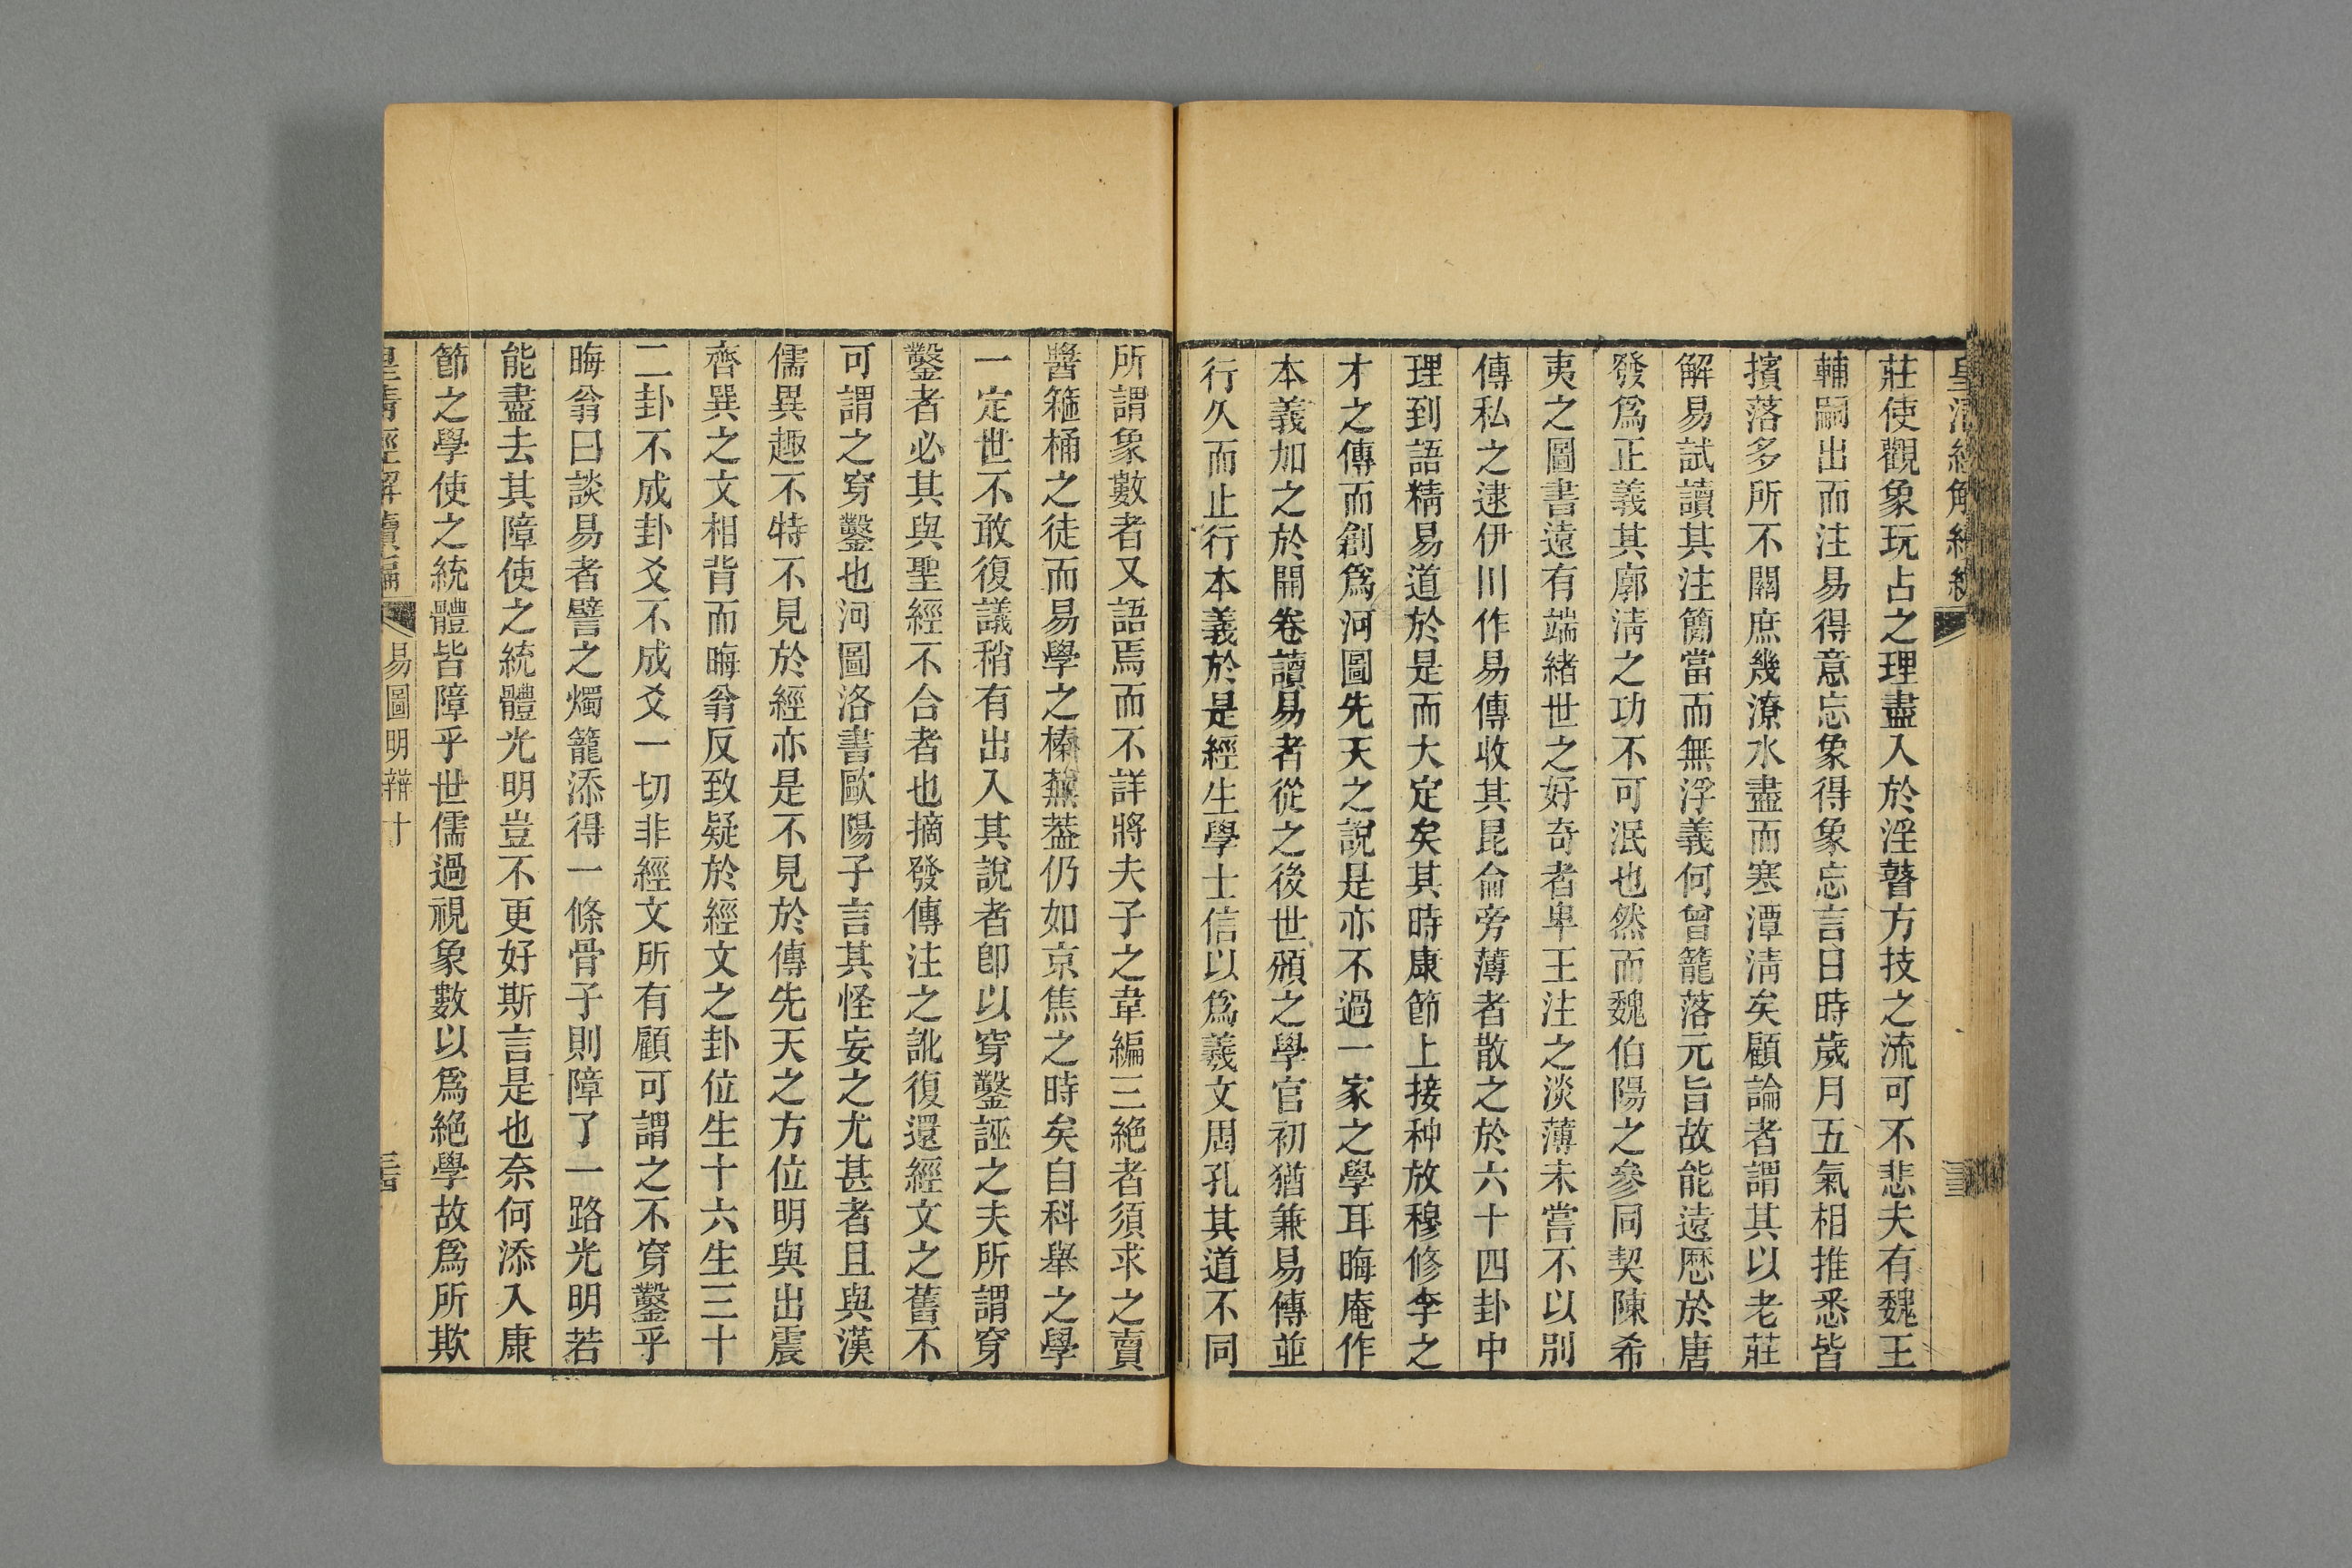 皇清經解續編
莊使觀象玩占之理盡入於淫瞽方技之流可不悲夫有魏王
輔嗣出而注易得意忘象得象忘言日時歲月五氣相推悉皆
擯落多所不關庶幾潦水盡而寒潭淸矣顧論者謂其以老莊
解易試讀其注簡當而無浮義何曾籠落元旨故能遠歷於唐
發爲正義其廓淸之功不可泯也然而魏伯陽之參同契陳希
夷之圖書遠有端緒世之好奇者卑王注之淡薄未嘗不以別
傳私之逮伊川作易傳收其昆侖旁薄者散之於六十四卦中
理到語精易道於是而大定矣其時康節上接种放穆修李之
才之傳而創爲河圖先天之說是亦不過一家之學耳晦庵作
本義加之於開卷讀易者從之後世頒之學官初猶兼易傳並
行久而止行本義於是經生學士信以爲羲文周孔其道不同
所謂象數者又語焉而不詳將夫子之韋編三絕者須求之賣
醬箍桶之徒而易學之榛蕪葢仍如京焦之時矣自科舉之學
一定世不敢復議稍有出入其說者卽以穿鑿誣之夫所謂穿
鑿者必其與聖經不合者也摘發傳注之訛復還經文之舊不
可謂之穿鑿也河圖洛書歐陽子言其怪妄之尤甚者且與漢
儒異趣不特不見於經亦是不見於傳先天之方位明與出震
齊巽之文相背而晦翁反致疑於經文之卦位生十六生三十
二卦不成卦爻不成爻一切非經文所有顧可謂之不穿鑿乎
晦翁曰談易者譬之燭籠添得一條骨子則障了一路光明若
能盡去其障使之統體光明豈不更好斯言是也奈何添入康
節之學使之統體皆障乎世儒過視象數以爲絕學故爲所欺
皇清經解續編 易圖明辨十 三西